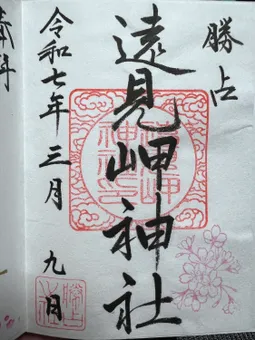 勝占
遠見岬神社
令和七年三月九日